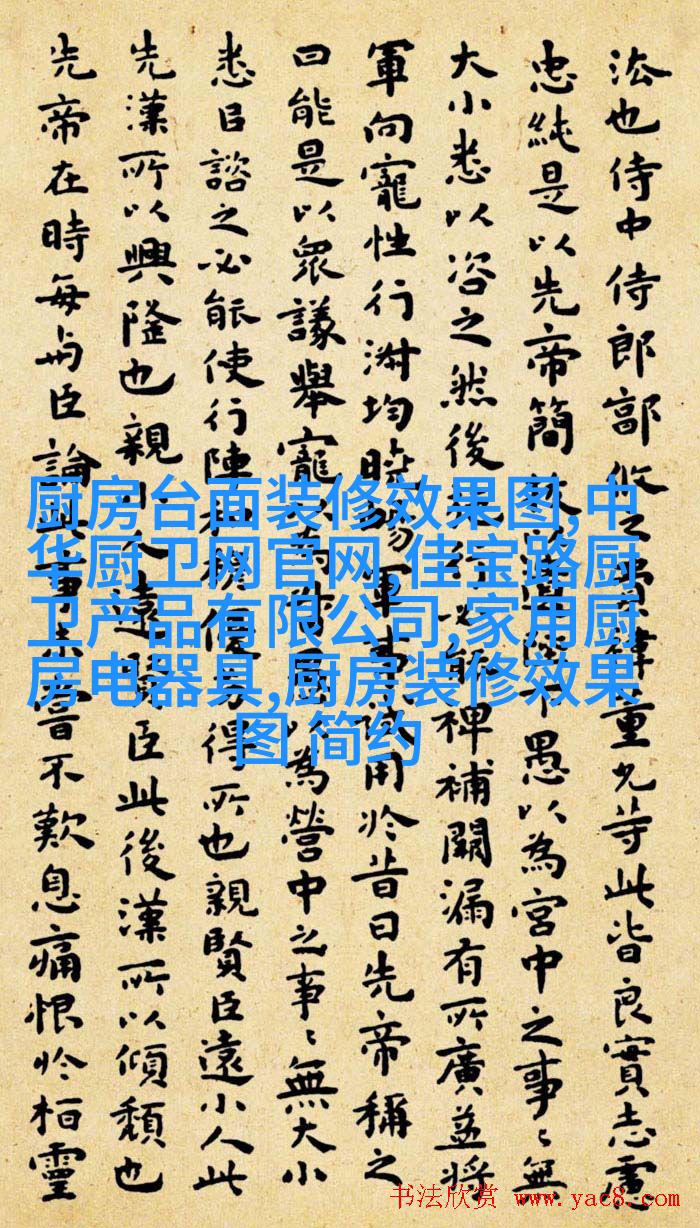 法也侍中侍郎郭攸之
重允等此皆良實志慮
忠純是以先帝簡拔
愚以為宮中之事〻無
大小悉以咨之然後
裨補闕漏有所廣益將
軍向寵性行淑均
用於昔日先帝稱之
曰能是以眾議舉寵
為營中之事〻無大小
悉以諮之必能使行陣
得所也親賢臣遠小人此
先漢所以興隆也親小
臣此後漢所以傾頹也
先帝在時每與臣論
不歎息痛恨於桓靈
厨房台面装修效果图,中
华厨卫网官网,佳宝路厨
卫产品有限公司,家用厨
房电器具,厨房装修效果
图 简约
书法欣赏 www.yac8.com